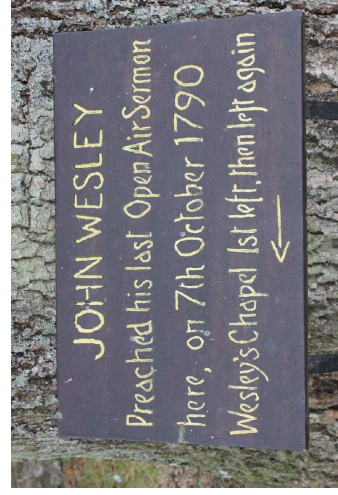 JOHN WESLEY
Preached his last Open Air Sermon
here, on 7th October 1790
Wesley's Chapel 1st left, then left again